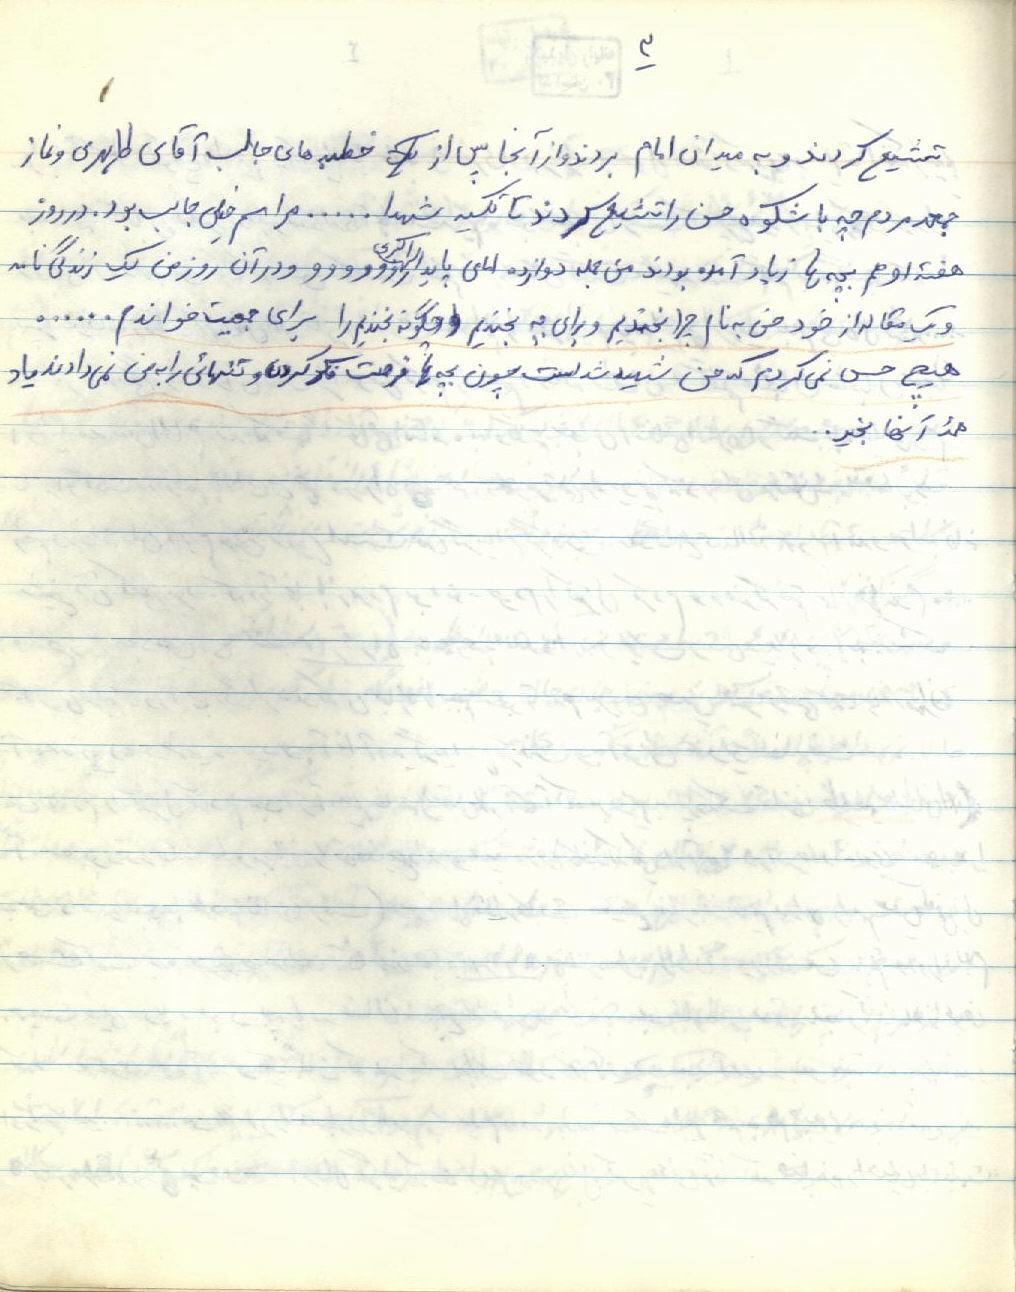 ۳
تشییع کردند و به میدان امام بردند و از آنجا پس از خطبه های جالب آقای طاهری و نماز
جمعه مردم چه با شکوه حسن را تشییع کردند تا تکیه شهدا ...... مراسم خیلی جالب بود. در روز
هفته او هم بچه ها زیاد آمده بودند من جمله دوازده امامی پایدار اکبری و و و و و و در آن روز من یک زندگی نامه
و یک مقاله از خود حسن به نام چرا بخندیم و برای چه بخندیم و چگونه بخندیم را برای جمعیت خواندم ......
هیچ حس نمی کردم که حسن شهید شده است چون بچه ها فرصت فکر کردن و تنهائی را به من نمی دادند یاد
همۀ آنها بخیر..